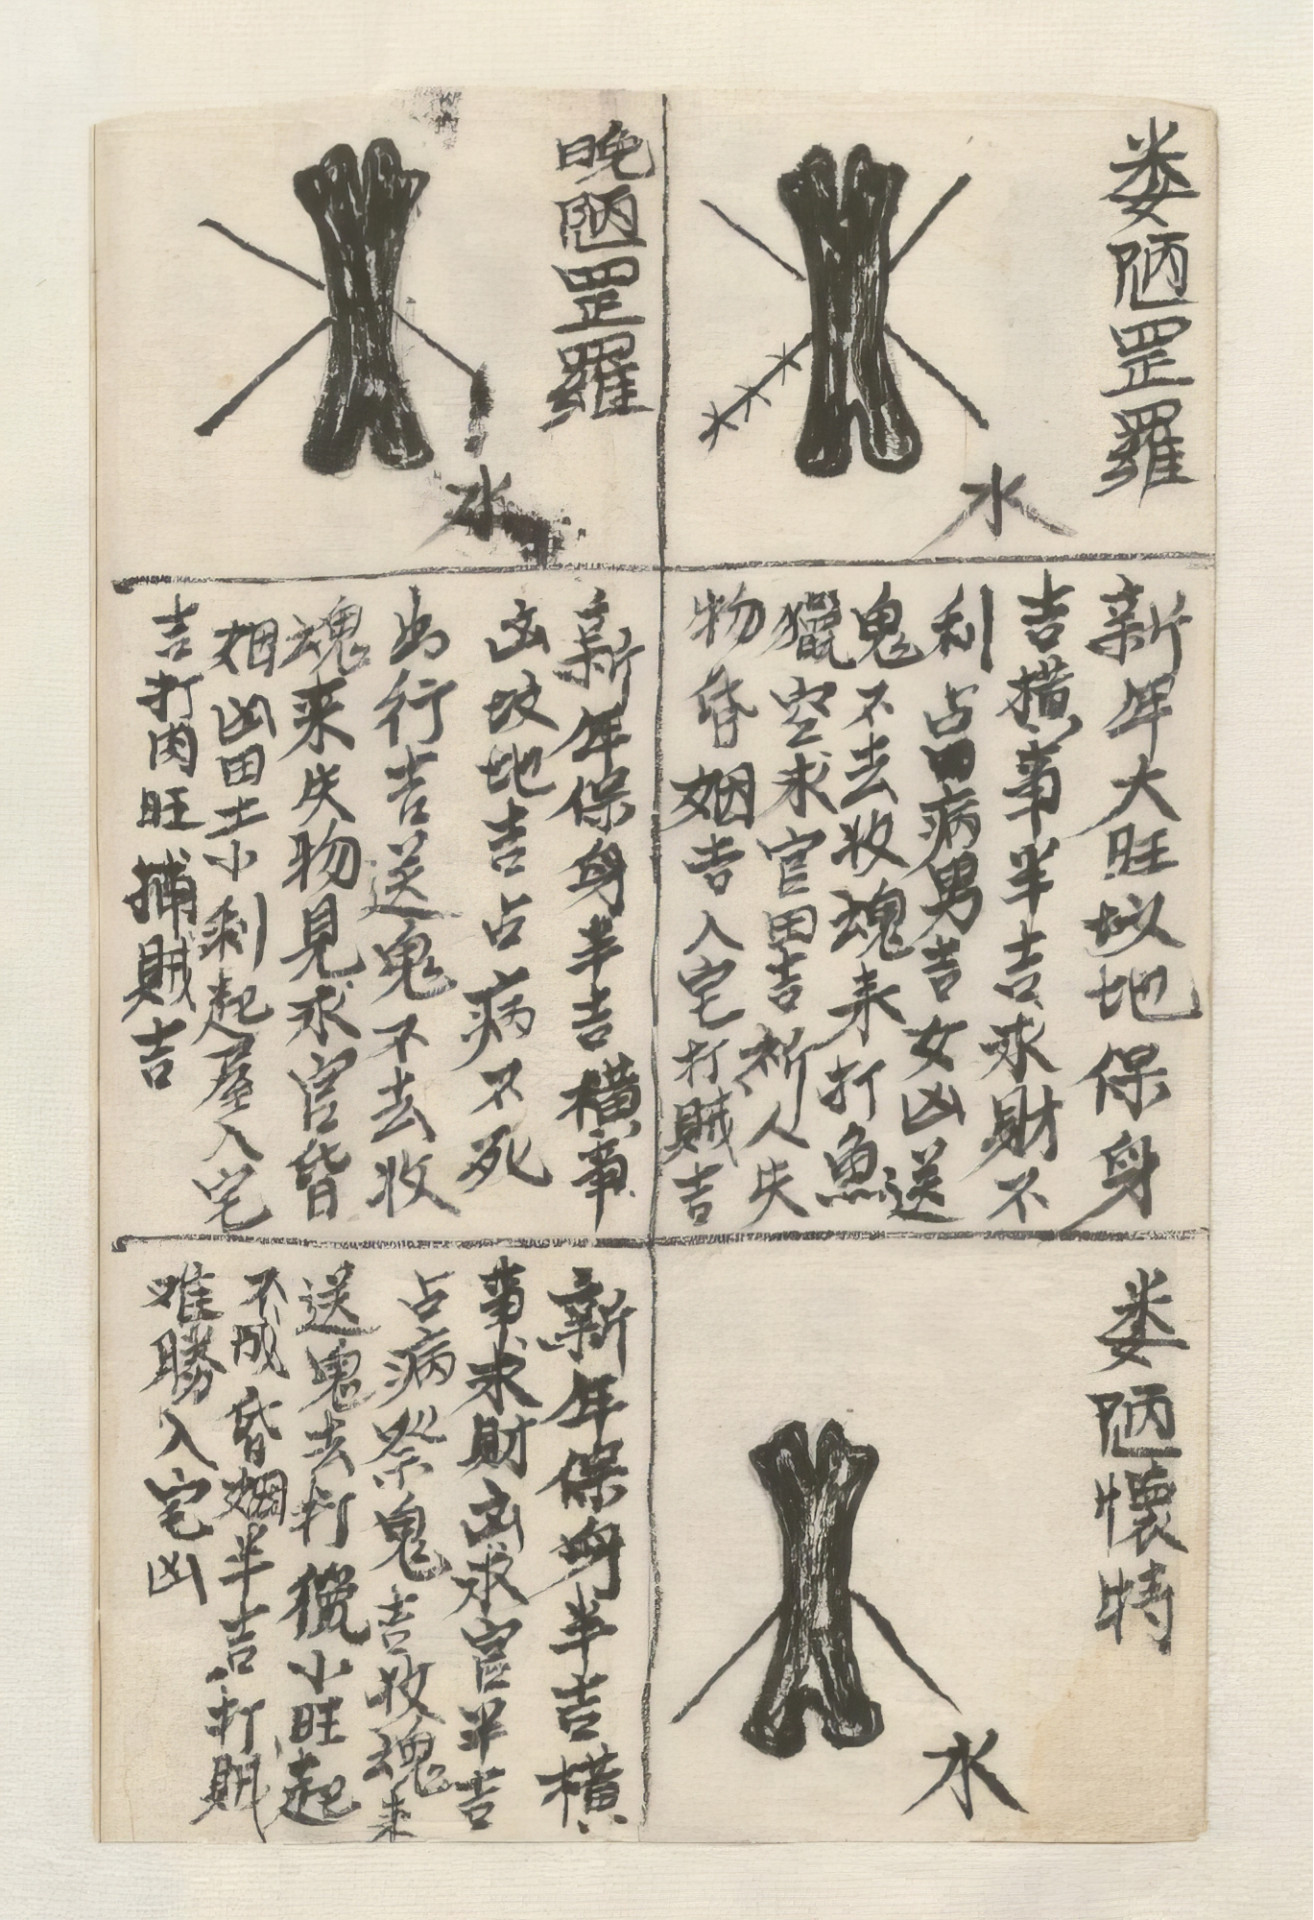 娄陋罡羅
水
新年大旺坟地保身
吉橫事半吉求財不
利占病男吉女凶送
鬼不去收魂来打魚
獵空求官田吉祈人失
物昏姻吉入宅打賊吉
晚陋罡羅
水
新年保身半吉橫事
凶坟地吉占病不死
出行吉送鬼不去收
魂来失物見求官昏
姻凶田土小利起屋入宅
吉打肉旺捕賊吉
娄陋懷特
水
新年保身半吉橫
事求財凶求官半吉
占病祭鬼吉收魂来
送鬼去打獵小旺起
不成昏姻半吉打賊
难勝入宅凶